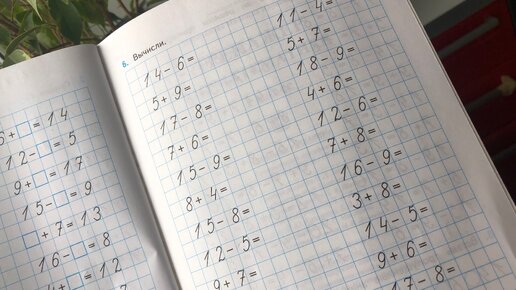 5+□=14
12-□=5
9+□=17
15-□=9
□+7=13
16-□=8
+□=12
6. Вычисли.
14-6=
5+9=
17-8=
7+6=
15-9=
8+4=
15-8=
12-5=
9+7=
11-4=
5+7=
18-9=
4+6=
12-6=
7+8=
16-9=
3+8=
14-5=
9+6=
17-8=